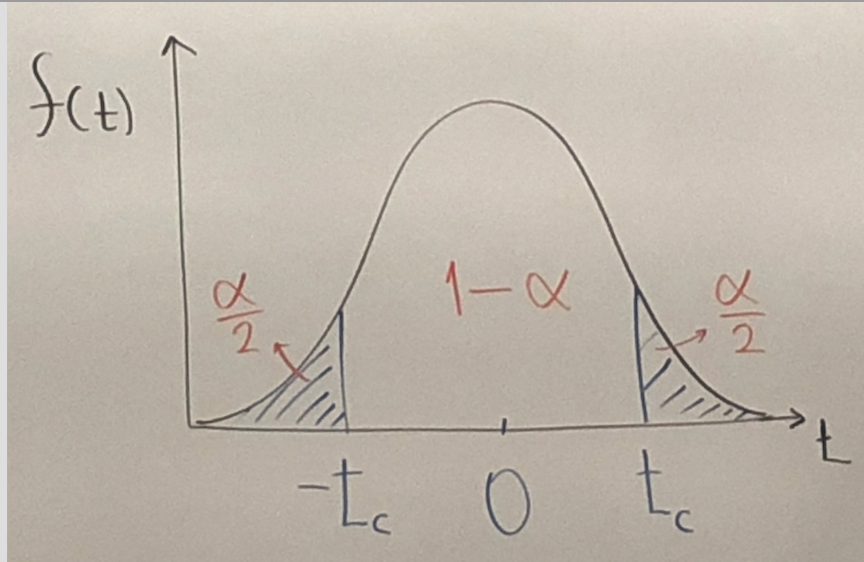 f(t)
α/2
1-α
α/2
-tc
0
tc
t